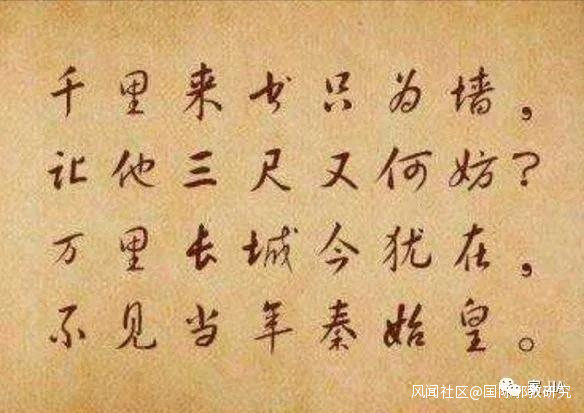 千里来书只为墙，
让他三尺又何妨？
万里长城今犹在，
不见当年秦始皇。
风闻社区@国际邪教研究